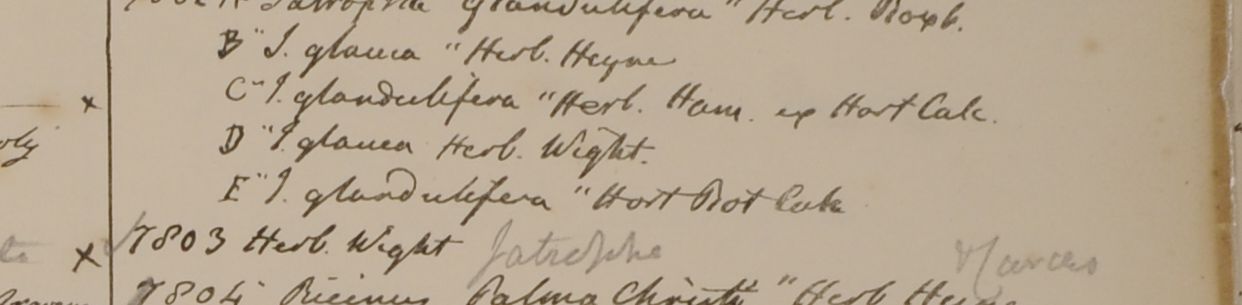 7802 A Jatropha glandulifera " Herb. Roxb.
B "J. glauca " Herb. Heyne
C "J. glandulifera " Herb. Ham. ex Hort Calc.
D "J. glauca Herb. Wight.
E "J. glandulifera " Hort Bot Calc
x 7803 Herb. Wight Jatropha
7804 Ricinus Palma Christi " Herb Heyne